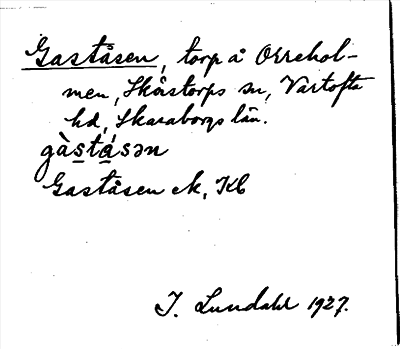 Gaståsen, torp å Orrehol-
men, Skörstorps sn, Vartofta
hd, Skaraborgs län.
gàstásən
Gaståsen ek, Kb
I. Lundahl 1927.